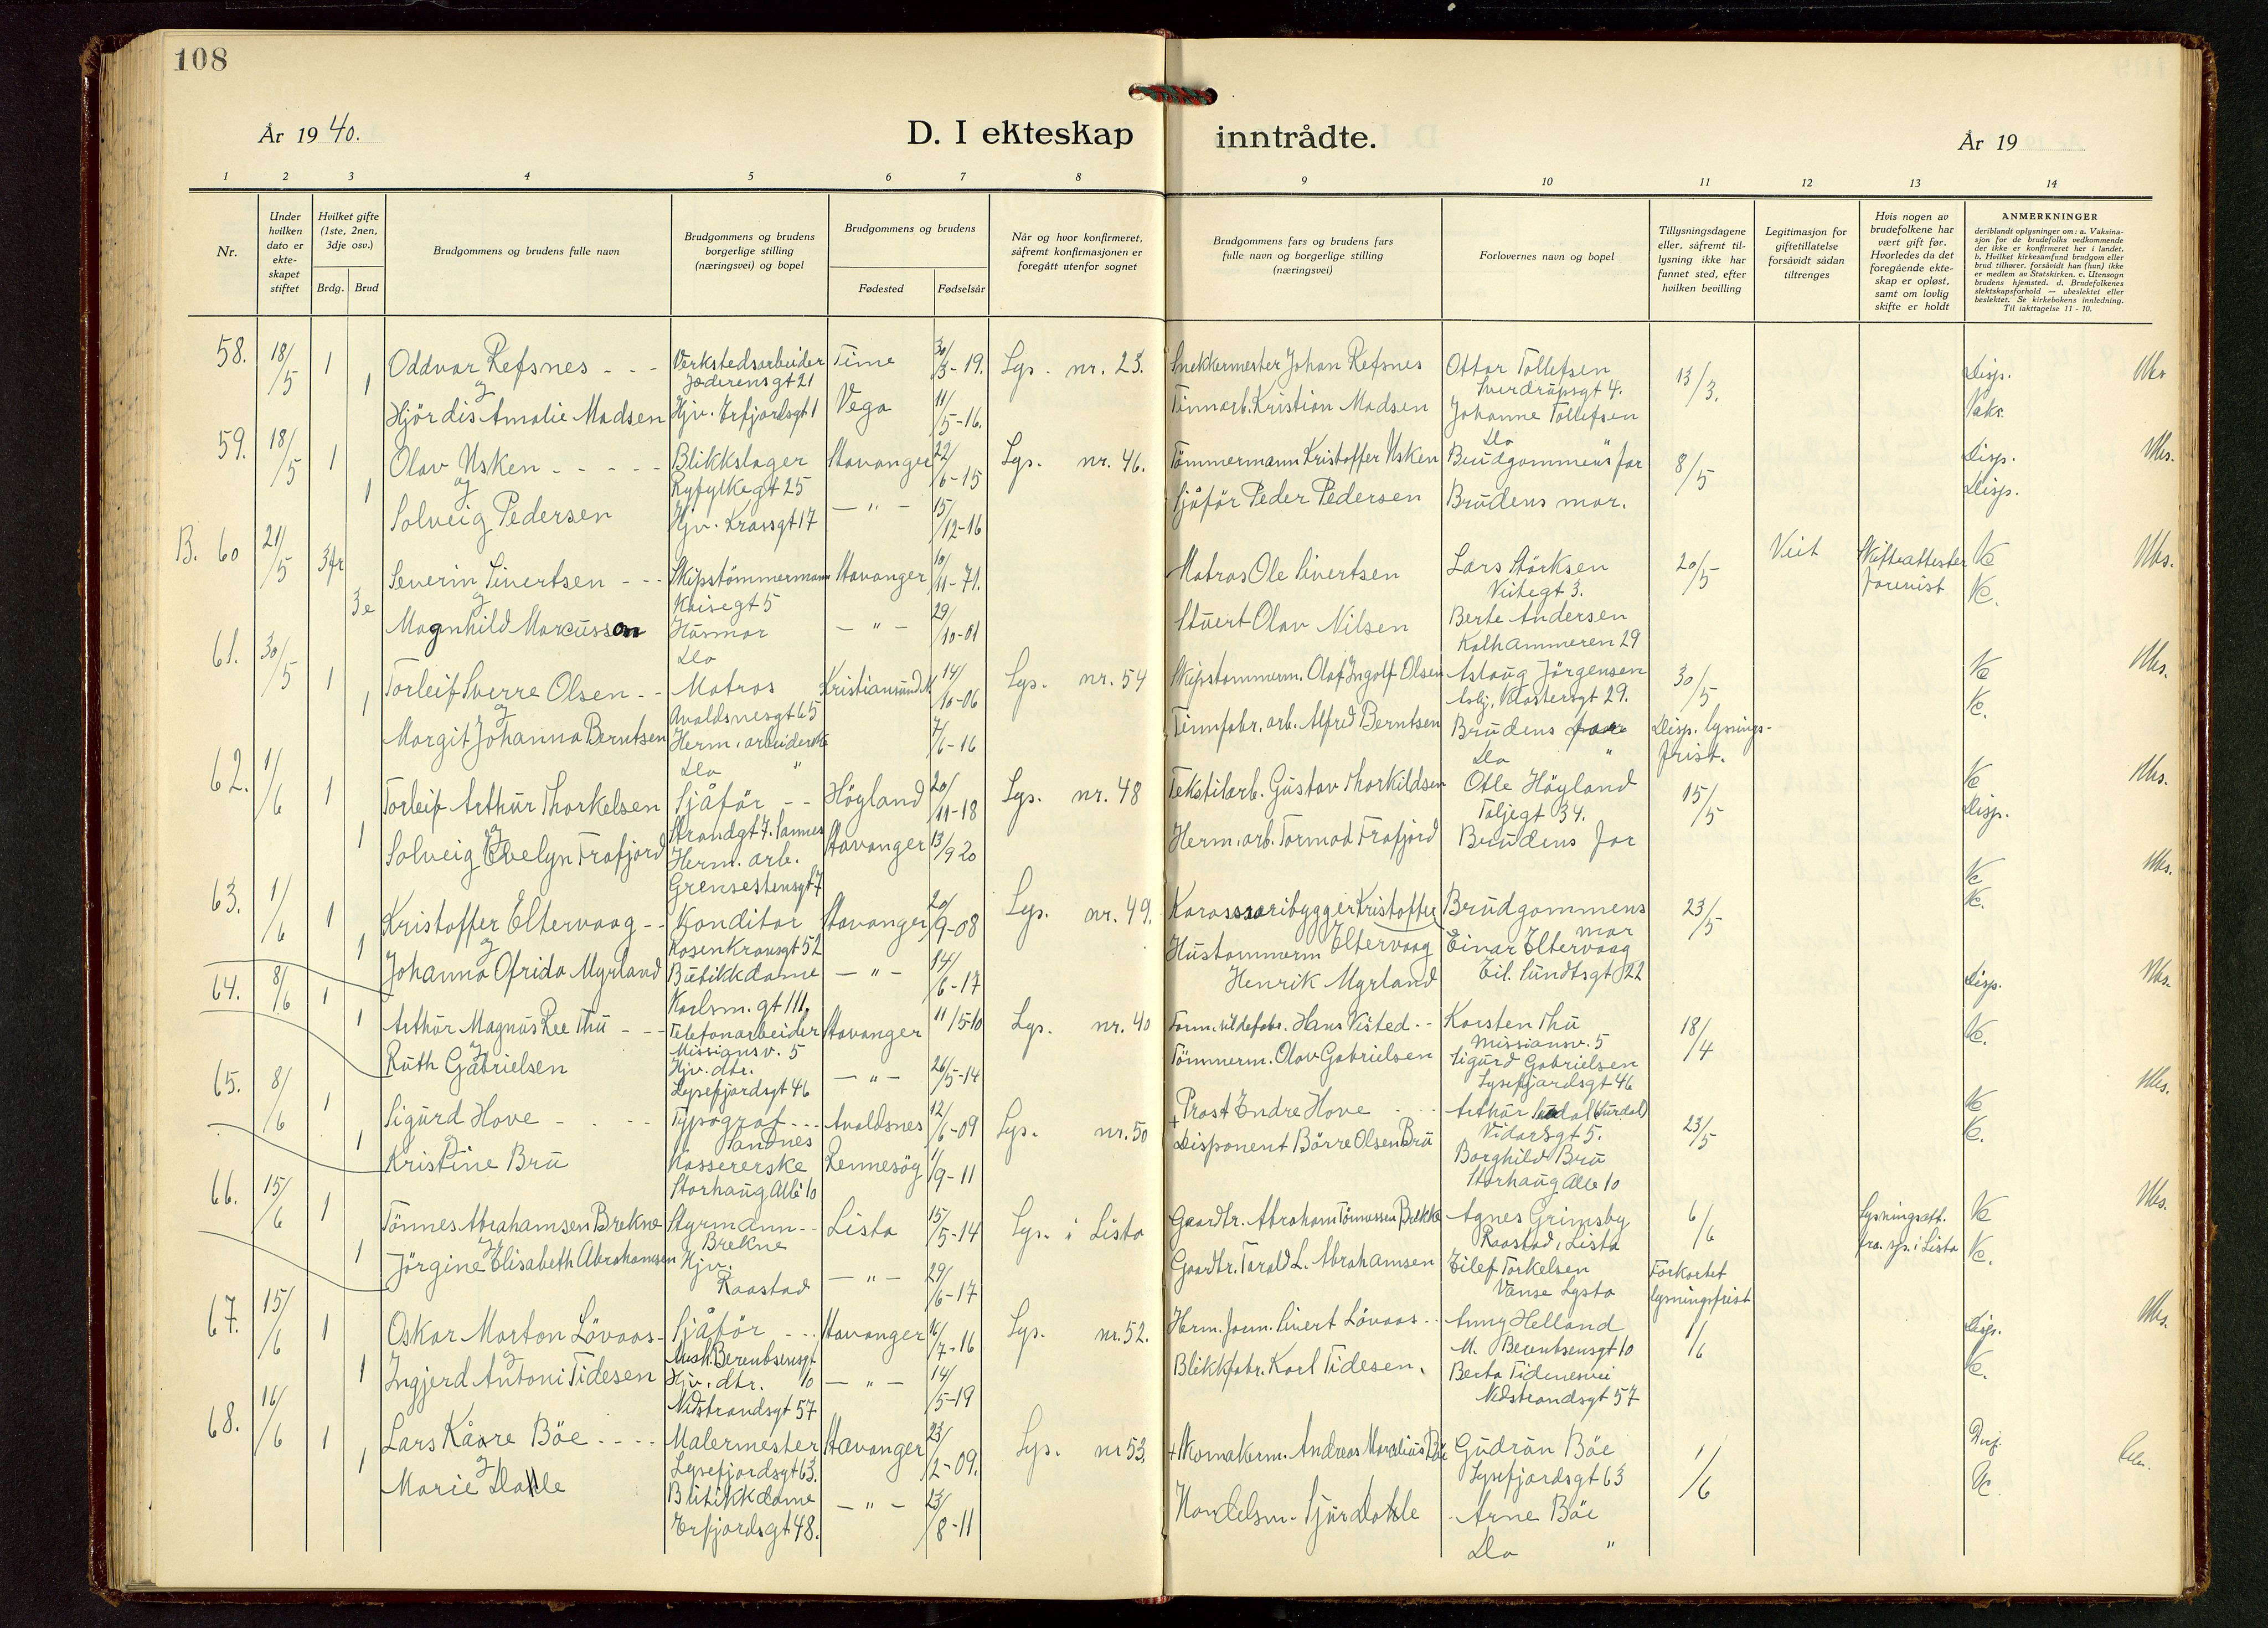 108
År 19 40.
D. I ekteskap inntrådte.
År 19
1 2 3 4 5 6 7 8 9 10 11 12 13 14
Nr.
Under hvilken dato er ekte- skapet stiftet
Hvilket gifte (1ste, 2nen, 3dje osv.)
Brdg. Brud
Brudgommens og brudens fulle navn
Brudgommens og brudens borgerlige stilling (næringsvei) og bopel
Brudgommens og brudens
Fødested Fødselsår
Når og hvor konfirmeret, såfremt konfirmasjonen er foregått utenfor sognet
Brudgommens fars og brudens fars fulle navn og borgerlige stilling (næringsvei)
Forlovernes navn og bopel
Tillysningsdagene eller, såfremt til- lysning ikke har funnet sted, efter hvilken bevilling
Legitimasjon for giftetillatelse forsåvidt sådan tiltrenges
Hvis nogen av brudefolkene har vært gift før. Hvorledes da det foregående ekte- skap er opløst, samt om lovlig skifte er holdt
ANMERKNINGER
deriblandt oplysninger om: a. Vaksina- sjon for de brudefolks vedkommende der ikke er konfirmeret her i landet. b. Hvilket kirkesamfund brudgom eller brud tilhører, forsåvidt han (hun) ikke er medlem av Statskirken. c. Utensogn brudens hjemsted. d. Brudefolkenes slektskapsforhold — ubeslektet eller beslektet. Se kirkebokens innledning. Til iakttagelse 11 - 10.
58. 18/5 1 Oddvar Refsnes - - - Verkstedsarbeider Time 30/3-19. Lys. nr. 23. Snekkermester Johan Refsnes Ottar Tollefsen 13/3. Disp.
og Jæderensgt 21 Sverdrupsgt 4.
1 Hjördis Amalie Madsen Hjv. Erfjordsgt 1 Vega 11/5-16. Tinnarb. Kristian Madsen Johanne Tollefsen Vaks.
Do "
59. 18/5 1 Olav Usken - - - - - Blikkslager Stavanger 22/6-15 Lys. nr. 46. Tömmermann Kristoffer Usken Brudgommens far 8/5 Disp.
og Ryfylkegt 25
1 Solveig Pedersen Hjv. Krossgt 17 — " — 15/12-16 Sjåför Peder Pedersen Brudens mor. Disp.
B. 60 21/5 3 Severin Sivertsen - - - Skipstömmermann Stavanger 10/11-71. Matros Ole Sivertsen Lars Störksen 20/5 Skifteattester
og Kaisegt 5 Vikegt 3. forevist
3e Magnhild Marcussen Husmor — " — 29/10-01 Stuert Olav Nilsen Berte Andersen
Do Kalhammeren 29
61. 30/5 1 Torleif Sverre Olsen - - Matros Kristiansund N. 14/10-06 Lys. nr. 54 Skipstømmerm. Olaf Ingolf Olsen Aslaug Jörgensen 30/5
og Avaldsnesgt 65 Klostergt 29.
1 Margit Johanna Berntsen Herm. arbeiderske 7/6-16 Tinnfabr. arb. Alfred Berntsen Brudens Disp. lysnings-
Do " Do " frist.
62. 1/6 1 Torleif Arthur Thorkelsen Sjåför - - Högland 20/11-18 Lys. nr. 48 Tekstilarb. Gustav Thorkildsen Olle Högland 15/5
og Strandgt 7. Sannes Taljegt 34. Disp.
1 Solveig Evelyn Frafjord Herm. arb. Stavanger 13/9 20 Herm. arb. Tormod Frafjord Brudens far
Grensestensgt 7
63. 1/6 1 Kristoffer Eltervaag - - Konditor Stavanger 20/9-08 Lys. nr. 49. Kristoffer Brudgommens mor 23/5
og Rosenkransgt 52 Eltervaag Einar Eltervaag
1 Johanna Ofrida Myrland Butikkdame — " — 14/6-17 Hustommerm Henrik Myrland Eil. Sundtsgt 22
Karlsm. gt 111.
64. 8/6 1 Arthur Magnus Ree Thu - - - Telefonarbeider Stavanger 11/5-10 Lys. nr. 40 Hans Visted - - Karsten Thu 18/4 Disp.
og Missionsv. 5 Missionsv. 5
1 Ruth Gabrielsen Hjv. dtr. — " — 26/5-14 Tömmerm. Olav Gabrielsen Sigurd Gabrielsen
Lysefjordsgt 46 Lysefjordsgt 46
65. 8/6 1 Sigurd Hove - - - - Typograf - - - Avaldsnes 12/6-09 Lys. nr. 50 + Prost Endre Hove Arthur (Surdal) 23/5
og Sandnes Vidarsgt 5.
1 Kristine Bru Kassererske Rennesöy 1/9-11 Disponent Börre Olsen Bru Borghild Bru
Storhaug Allé 10 Storhaug Alle 10
66. 15/6 1 Tönnes Abrahamsen Brekne Styrmann - - Lista 15/5-14 Lys. i Lista Gaardbr. Abraham Tönnessen Brekke Agnes Grimsby 6/6 Lysningsatt.
og Brekne Raastad, Lista fra. sp. i Lista
1 Jörgine Elisabeth Abrahamsen Hjv. — " — 29/6-17 Gaardbr. Tarald L. Abrahamsen Eilef Torkelsen Forkortet
Raastad Vanse Lysta lysningsfrist
67. 15/6 1 Oskar Morton Lövaas - Sjåför - - - Stavanger 16/7-16 Lys. nr. 52. Herm. form. Sivert Lövaas - - Anny Helland 1/6 Disp.
og Mich. Berentsensgt 10 M. Berentsensgt 10
1 Ingjerd Antoni Tidesen Hjv. dtr. — " — 14/5-19 Blikkfabr. Karl Tidesen. Berta
Nedstrandsgt 57 Nedstrandsgt 57
68. 16/6 1 Lars Kåre Böe - - - - Malermester Stavanger 23/2-09. Lys. nr 53. + Skomakerm. Andreas Marelius Böe Gudrun Böe 1/6
og Lysefjordsgt 63. Lysefjordsgt 63
1 Marie Dahle Butikkdame — " — 23/8-11 Handelsm. Sjur Dahle Arne Böe
Erfjordsgt 48. Do "